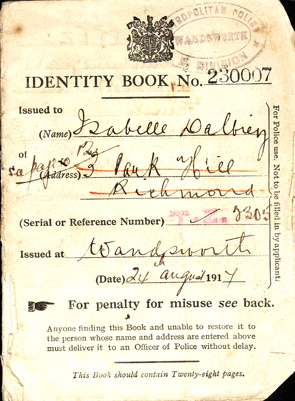 METROPOLITAN POLICE
WANDSWORTH
DIVISION
IDENTITY BOOK No. 230007
Issued to
(Name) Isabelle Dalbiez
of
(Address) 3 Park Hill
Richmond
(Serial or Reference Number) 2305
Issued at Wandsworth
(Date) 24th August 1917
For penalty for misuse see back.
Anyone finding this Book and unable to restore it
to the person whose name and address are entered above
must deliver it to an Officer of Police without delay.
This Book should contain Twenty-eight pages.
For Police use. Not to be filled in by applicant.